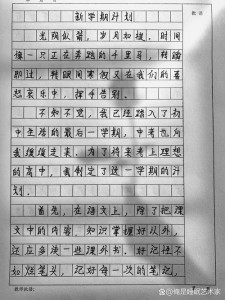 新学期计划
光阴似箭，岁月如梭。时间
像一只正在奔跑的千里马，转瞬
即过，转眼间寒假又在我们的喜
怒哀乐中，挥手告别。
不知不觉，我已经踏入了初
中生活的最后一学期，中考也向
我慢慢走来。为了将来考上理想
的高中，我制定了这一学期的计
划。
首先，在语文上，除了把课
文中的内容、知识掌握好以外，
还应多读一些课外书。好记性不
如烂笔头，记好每一次的笔记，
教师评语：
@椎是睡眠艺术家